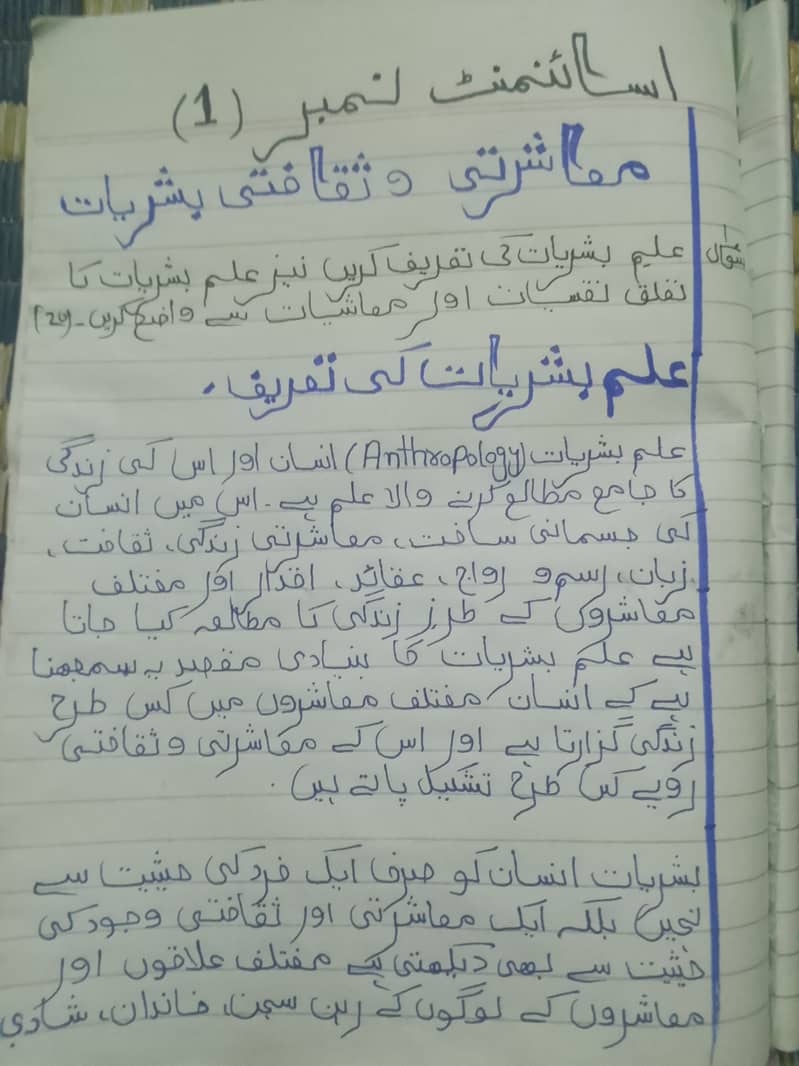 اسائنمنٹ نمبر (1)
معاشرتی و ثقافتی بشریات
سوال 1 علم بشریات کی تعریف کریں نیز علم بشریات کا
تعلق نفسیات اور معاشیات سے واضح کریں۔ (20)
علم بشریات کی تعریف۔
علم بشریات (Anthropology) انسان اور اس کی زندگی
کا جامع مطالع کرنے والا علم ہے۔ اس میں انسان
کی جسمانی ساخت، معاشرتی زندگی، ثقافت،
زبان، رسم و رواج، عقائد، اقدار اور مختلف
معاشروں کے طرز زندگی کا مطالعہ کیا جاتا
ہے علم بشریات کا بنیادی مقصد یہ سمجھنا
ہے کے انسان مختلف معاشروں میں کس طرح
زندگی گزارتا ہے اور اس کے معاشرتی و ثقافتی
رویے کس طرح تشکیل پاتے ہیں۔
بشریات انسان کو صرف ایک فرد کی حیثیت سے
نہیں بلکہ ایک معاشرتی اور ثقافتی وجود کی
حثیت سے بھی دیکھتی ہے مختلف علاقوں اور
معاشروں کے لوگوں کے رہن سہن، خاندان، شادی